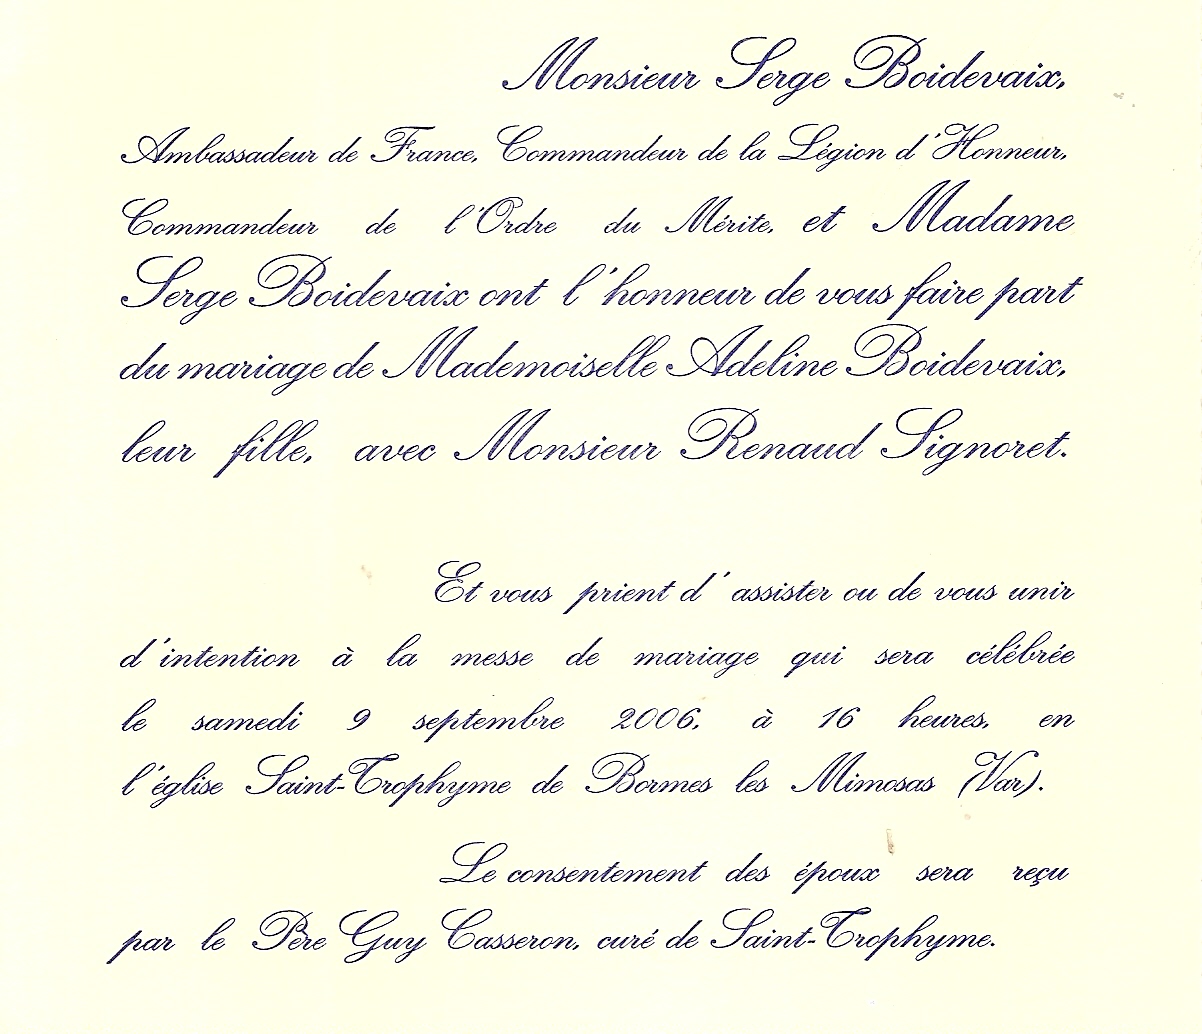 Monsieur Serge Boidevaix,
Ambassadeur de France, Commandeur de la Légion d'Honneur,
Commandeur de l'Ordre du Mérite, et Madame
Serge Boidevaix ont l'honneur de vous faire part
du mariage de Mademoiselle Adeline Boidevaix,
leur fille, avec Monsieur Renaud Signoret.
Et vous prient d'assister ou de vous unir
d'intention à la messe de mariage qui sera célébrée
le samedi 9 septembre 2006, à 16 heures, en
l'église Saint-Trophyme de Bormes les Mimosas (Var).
Le consentement des époux sera reçu
par le Père Guy Casseron, curé de Saint-Trophyme.